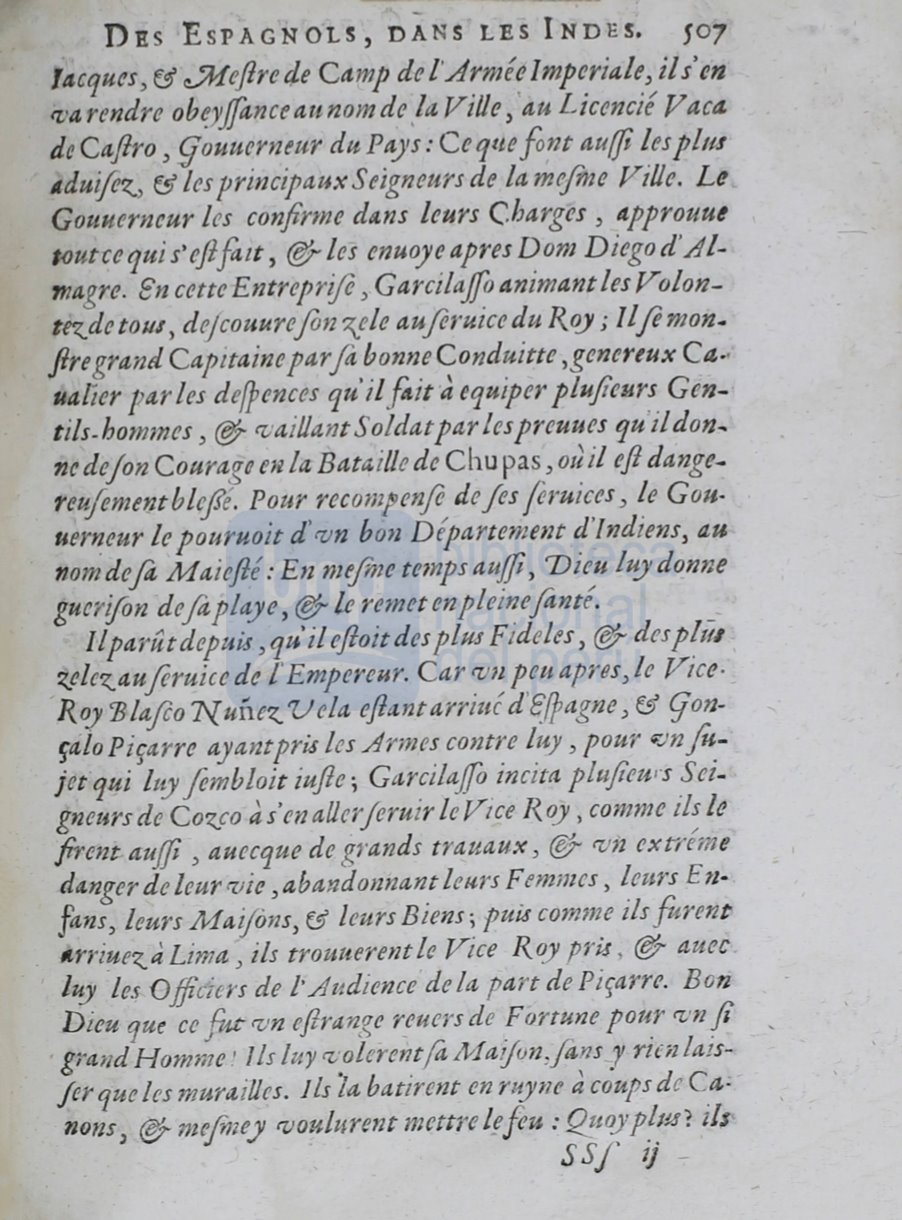 DES ESPAGNOLS, DANS LES INDES. 507
Iacques, & Meſtre de Camp de l'Armée Imperiale, il s'en
va rendre obeyſſance au nom de la Ville, au Licencié Vaca
de Caſtro, Gouuerneur du Pays: Ce que font auſſi les plus
aduiſez, & les principaux Seigneurs de la meſme Ville. Le
Gouuerneur les confirme dans leurs Charges, approuue
tout ce qui s'eſt fait, & les enuoye apres Dom Diego d'Al-
magre. En cette Entrepriſe, Garcilaſſo animant les Volon-
tez de tous, deſcouure ſon zele au ſeruice du Roy; Il ſe mon-
ſtre grand Capitaine par ſa bonne Conduitte, genereux Ca-
ualier par les deſpences qu'il fait à equiper pluſieurs Gen-
tils-hommes, & vaillant Soldat par les preuues qu'il don-
ne de ſon Courage en la Bataille de Chupas, où il eſt dange-
reuſement bleßé. Pour recompenſe de ſes ſeruices, le Gou-
uerneur le pouruoit d'vn bon Département d'Indiens, au
nom de ſa Maieſté: En meſme temps auſſi, Dieu luy donne
gueriſon de ſa playe, & le remet en pleine ſanté.
Il parût depuis, qu'il eſtoit des plus Fideles, & des plus
zelez au ſeruice de l'Empereur. Car vn peu apres, le Vice-
Roy Blaſco Nuñez Vela eſtant arriué d'Eſpagne, & Gon-
çalo Piçarre ayant pris les Armes contre luy, pour vn ſu-
jet qui luy ſembloit iuſte; Garcilaſſo incita pluſieurs Sei-
gneurs de Cozco à s'en aller ſeruir le Vice Roy, comme ils le
firent auſſi, auecque de grands trauaux, & vn extréme
danger de leur vie, abandonnant leurs Femmes, leurs En-
fans, leurs Maiſons, & leurs Biens; puis comme ils furent
arriuez à Lima, ils trouuerent le Vice Roy pris, & auec
luy les Officiers de l'Audience de la part de Piçarre. Bon
Dieu que ce fut vn eſtrange reuers de Fortune pour vn ſi
grand Homme! Ils luy volerent ſa Maiſon, ſans y rien laiſ-
ſer que les murailles. Ils la batirent en ruyne à coups de Ca-
nons, & meſme y voulurent mettre le feu: Quoy plus? ils
SSſ ij
biblioteca
nacional
del perú